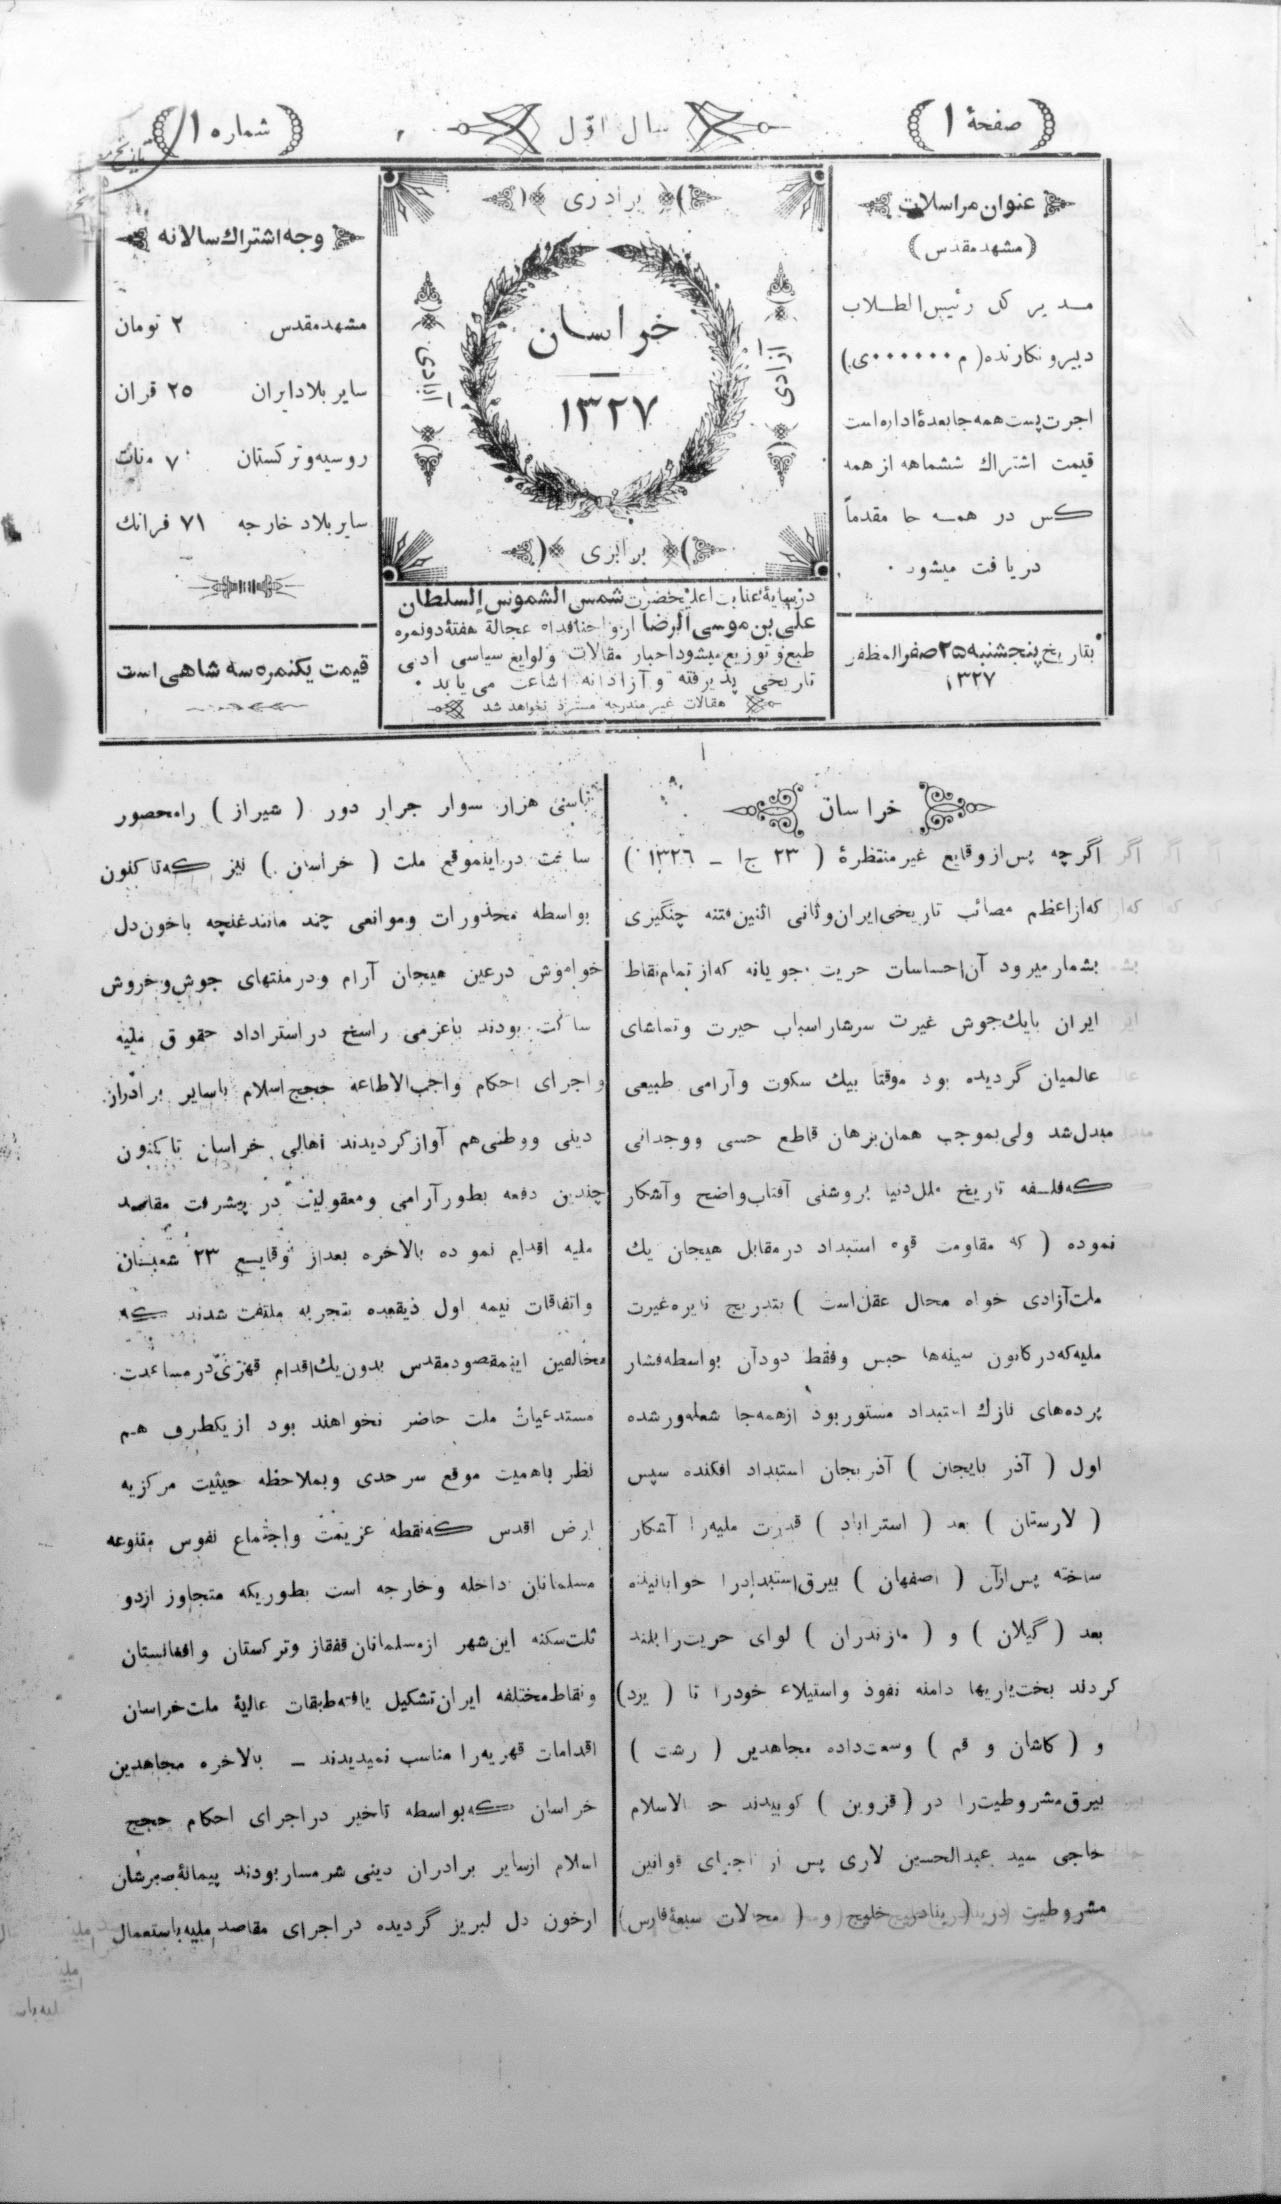 صفحهٔ ۱
سال اوّل
شماره ۱
عنوان مراسلات
(مشهد مقدس)
مدیر کل رئیس الطلاب
دبیر و نکارنده (م ۰۰۰۰۰۰ی)
اجرت پست همه جا بعدهٔ اداره است
قیمت اشتراك ششماهه از همه
کس در همه جا مقدماً
دریافت میشود ۰
بتاریخ پنجشنبه ۲۵ صفر المظفر
۱۳۲۷
برادری
آزادی
خراسان
۱۳۲۷
آزادی
برابری
در سایهٔ عنایت اعلیحضرت شمس الشموس السلطان
علی بن موسی الرضا ارواحنا فداه عجالة هفتهٔ دو نمره
طبع و توزیع میشود اخبار مقالات و لوایح سیاسی ادبی
تاریخی پذیرفته و آزادانه اشاعت می یابد ۰
مقالات غیر مندرجه مسترد نخواهد شد
وجه اشتراك سالانه
مشهد مقدس ۲ تومان
سایر بلاد ایران ۲۵ قران
روسیه و ترکستان ۷ منات
سایر بلاد خارجه ۷۱ فرانك
قیمت یکنمره سه شاهی است
خراسان
اگرچه پس از وقایع غیر منتظرهٔ (۲۳ ج۱ ــ ۱۳۲٦)
که از اعظم مصائب تاریخی ایران و ثانی اثنین فتنه چنگیزی
بشمار میرود آن احساسات حریت جویانه که از تمام نقاط
ایران بایك جوش غیرت سرشار اسباب حیرت و تماشای
عالمیان گردیده بود موقتاً بیك سکوت و آرامی طبیعی
مبدل شد ولی بموجب همان برهان قاطع حسی و وجدانی
که فلسفه تاریخ ملل دنیا بروشنی آفتاب واضح و آشکار
نموده (که مقاومت قوه استبداد در مقابل هیجان یك
ملت آزادی خواه محال عقل است) بتدریج نایره غیرت
ملیه که در کانون سینه ها حبس و فقط دود آن بواسطه فشار
پرده های نازك استبداد مستور بود از همه جا شعله ور شده
اول (آذر بایجان) آذر بجان استبداد افکنده سپس
(لارستان) بعد (استراباد) قدرت ملیه را آشکار
ساخته پس از آن (اصفهان) بیرق استبداد را خوابانیده
بعد (گیلان) و (مازندران) لوای حریت را بلند
کردند بختیاریها دامنه نفوذ و استیلاء خود را تا (یزد)
و (کاشان و قم) وسعت داده مجاهدین (رشت)
بیرق مشروطیت را در (قزوین) کوبیدند الاسلام
حاجی سید عبدالحسین لاری پس از اجرای قوانین
مشروطیت در (بنادر خلیج و (محالات سبعهٔ فارس)
باسی هزار سوار جرار دور (شیراز) را محصور
ساخت در اینموقع ملت (خراسان) نیز که تا کنون
بواسطه محذورات و موانعی چند مانند غنچه با خون دل
خواموش در عین هیجان آرام و در منتهای جوش و خروش
ساکت بودند با عزمی راسخ در استرداد حقوق ملیه
و اجرای احکام واجب الاطاعه حجج اسلام با سایر برادران
دینی و وطنی هم آواز کردیدند اهالی خراسان تا کنون
چندین دفعه بطور آرامی و معقولیت در پیشرفت مقاصد
ملیه اقدام نموده بالاخره بعد از وقایع ۲۳ شعبان
و اتفاقات نیمه اول ذیقعده بتجربه ملتفت شدند که
مخالفین این مقصود مقدس بدون یك اقدام قهری در مساعدت
مستدعیات ملت حاضر نخواهند بود از یکطرف هم
نظر باهمیت موقع سرحدی و بملاحظه حیثیت مرکزیه
ارض اقدس که نقطه عزیمت و اجتماع نفوس متنوعه
مسلمانان داخله و خارجه است بطوریکه متجاوز از دو
ثلث سکنه این شهر از مسلمانان قفقاز و ترکستان و افغانستان
و نقاط مختلفه ایران تشکیل یافته طبقات عالیهٔ ملت خراسان
اقدامات قهریه را مناسب نمیدیدند ــ بالاخره مجاهدین
خراسان که بواسطه تاخیر در اجرای احکام حجج
اسلام از سایر برادران دینی شرمسار بودند پیمانهٔ صبرشان
از خون دل لبریز گردیده در اجرای مقاصد ملیه باستعمال